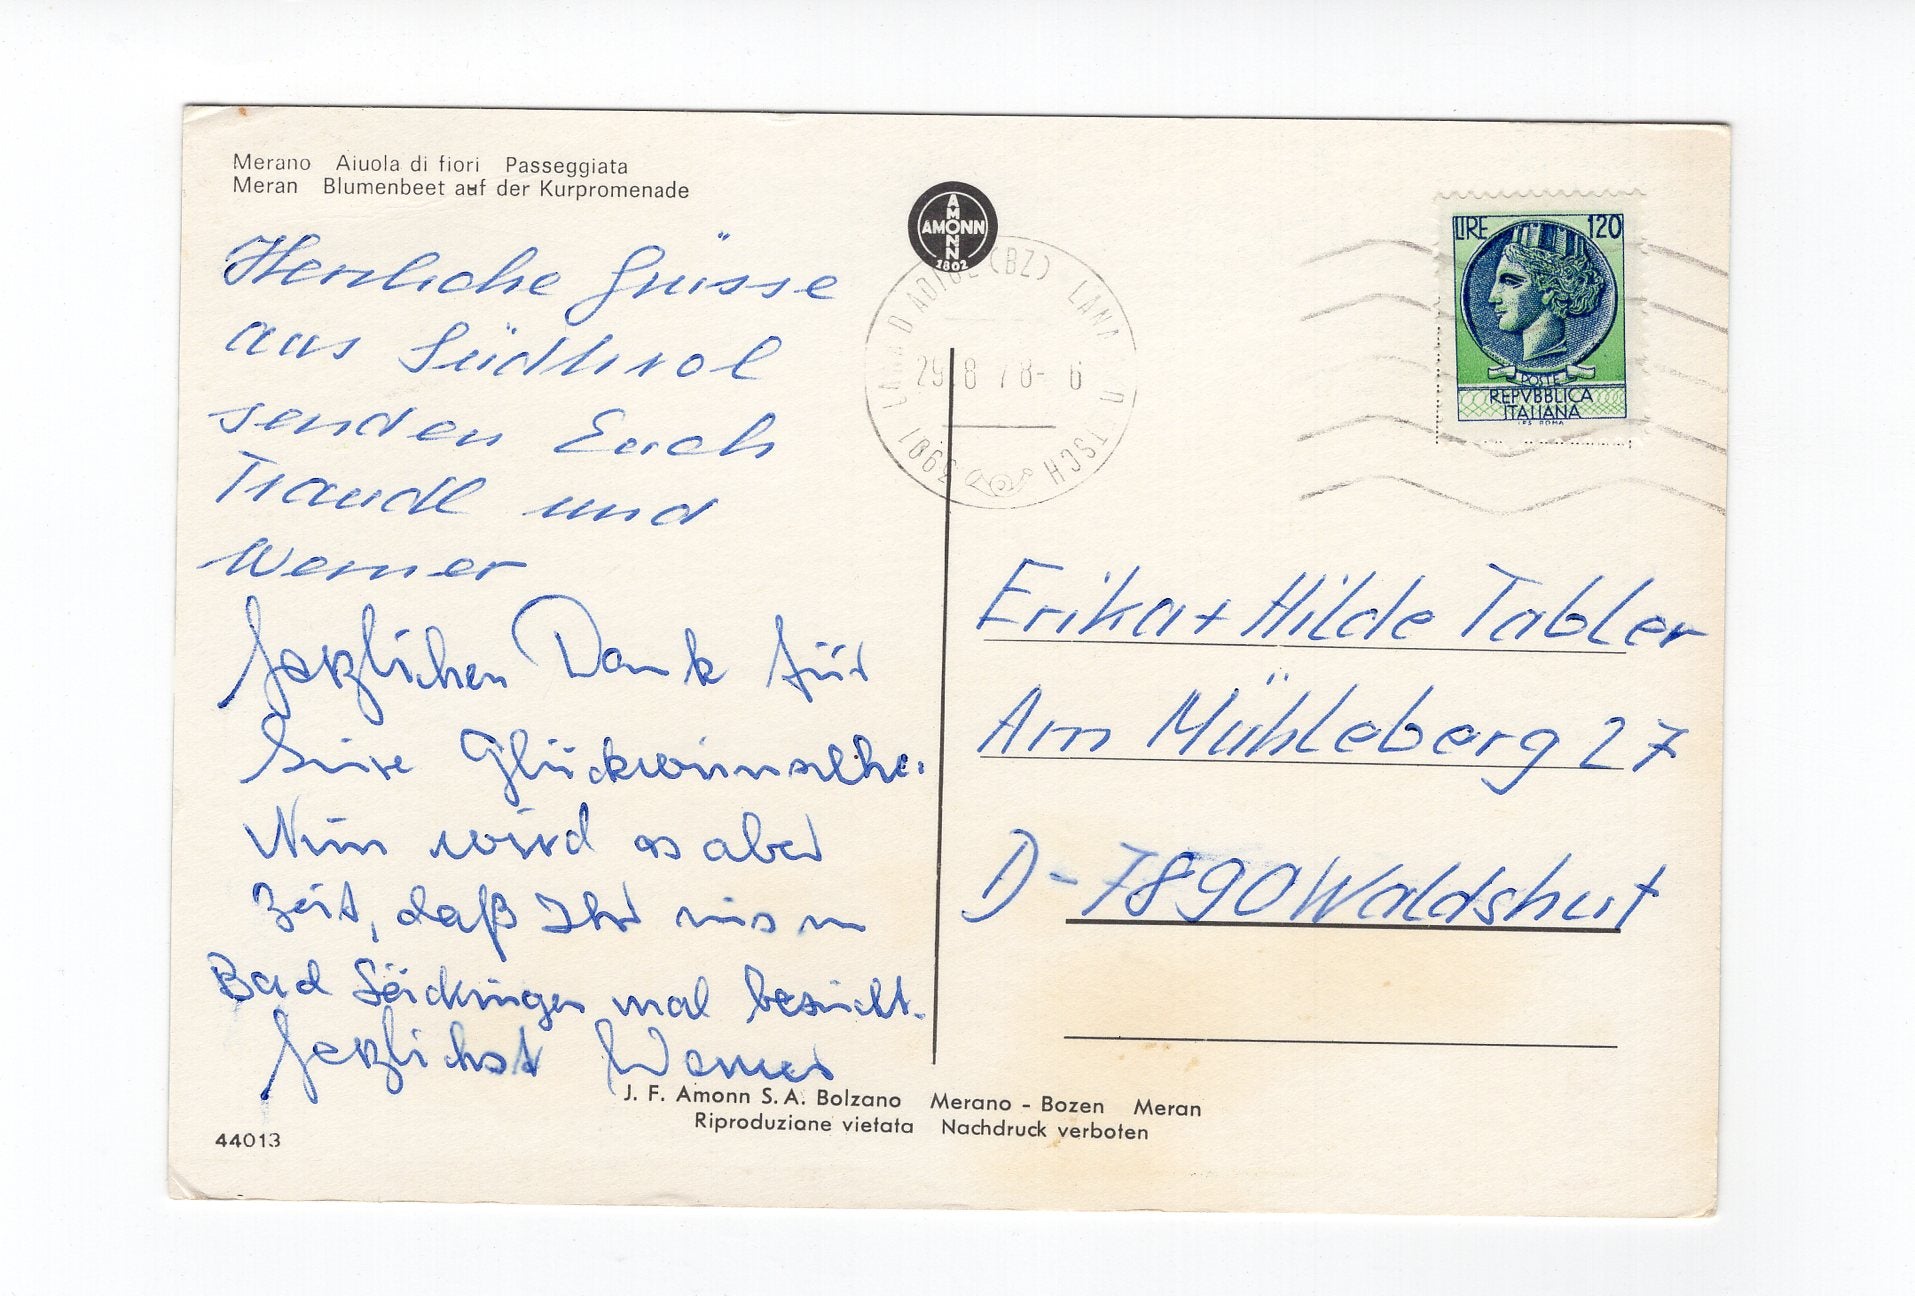 Merano Aiuola di fiori Passeggiata
Meran Blumenbeet auf der Kurpromenade
Herrliche Grüsse
aus Südtirol
senden Euch
Traudl und
Werner
Herzlichen Dank für
Eure Glückwünsche.
Nun wird es aber
Zeit, daß Ihr uns in
Bad Säckingen mal besucht.
Herzlichst Werner
AMONN
AMONN
1802
LANA D'ADIGE (BZ) - LANA D. ETSCH
29.8 78- 6
39011
LIRE 120
POSTE
REPVBBLICA
ITALIANA
I.P.S. ROMA
Erika + Hilde Tabler
Am Mühleberg 27
D-7890 Waldshut
J. F. Amonn S. A. Bolzano Merano - Bozen Meran
Riproduzione vietata Nachdruck verboten
44013